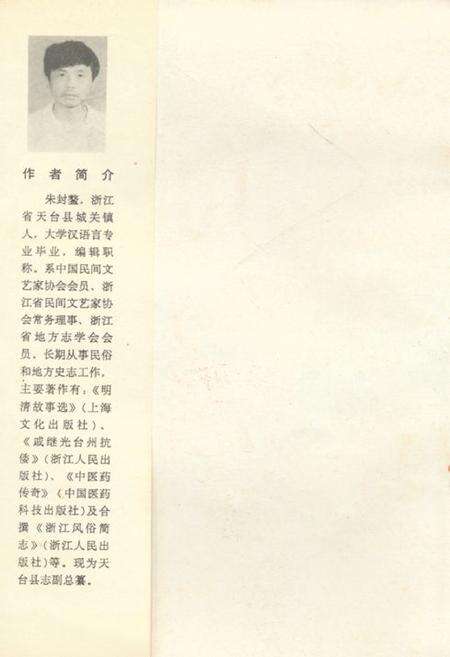 作者简介
朱封鳌，浙江
省天台县城关镇
人，大学汉语言专
业毕业，编辑职
称。系中国民间文
艺家协会会员、浙
江省民间文艺家协
会常务理事、浙江
省地方志学会会
员，长期从事民俗
和地方史志工作。
主要著作有：《明
清故事选》（上海
文化出版社）、
《戚继光台州抗
倭》（浙江人民出
版社）、《中医药
传奇》（中国医药
科技出版社）及合
撰《浙江风俗简
志》（浙江人民出
版社）等。现为天
台县志副总纂。